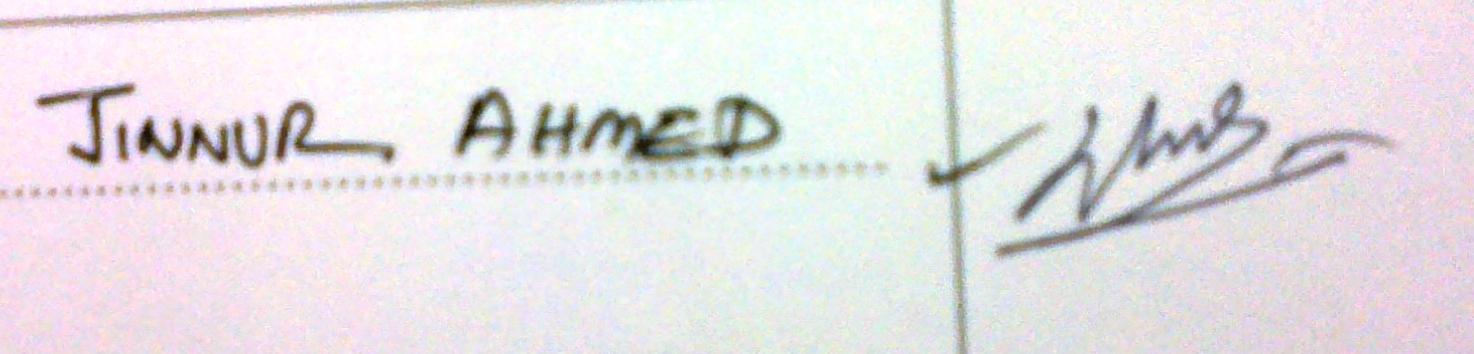 JINNUR AHMED